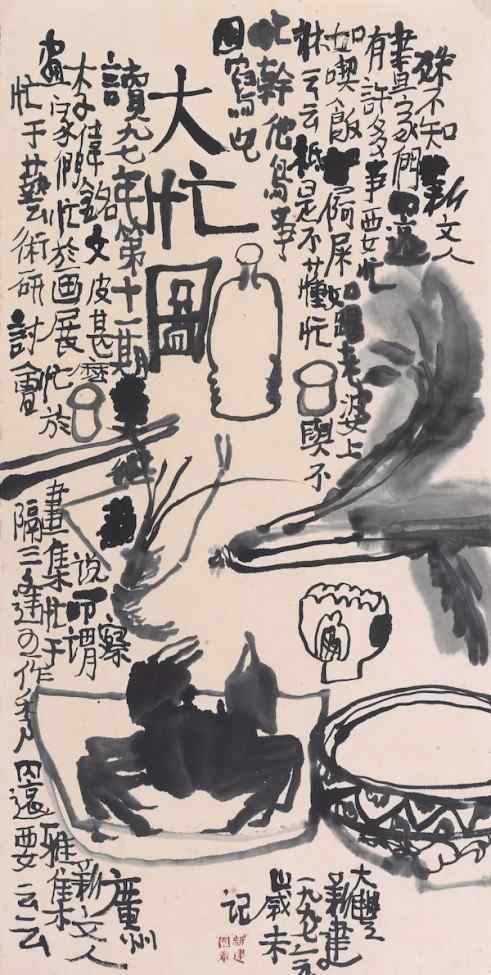 大忙圖
讀九七年第十二期
李偉銘文
皮甚麼
畫家們忙於画展忙於
忙于藝術研討會
畫集忙于
隔三逢五作秀
因還要云云
說叩谓察
雅集
廣州
新文人
殊不知新文人
畫畫家們因還
有許多事要忙
如喫飯如屙屎如跟老婆上
牀云云祇是不懂忙與不
忙幹他鳥事
因寫也
大豐
新建
一九九七年
歲末
記